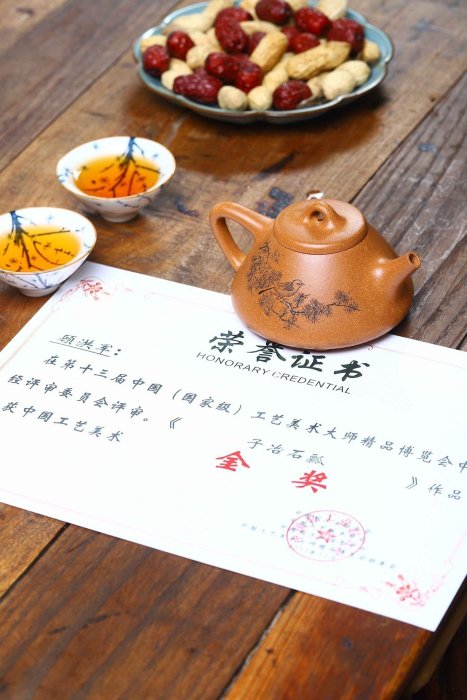 荣誉证书
HONORARY CREDENTIAL
顾洪军：
在第十三届中国（国家级）工艺美术大师精品博览会中
经评审委员会评审。《 子冶石瓢 》作品
获中国工艺美术 金奖